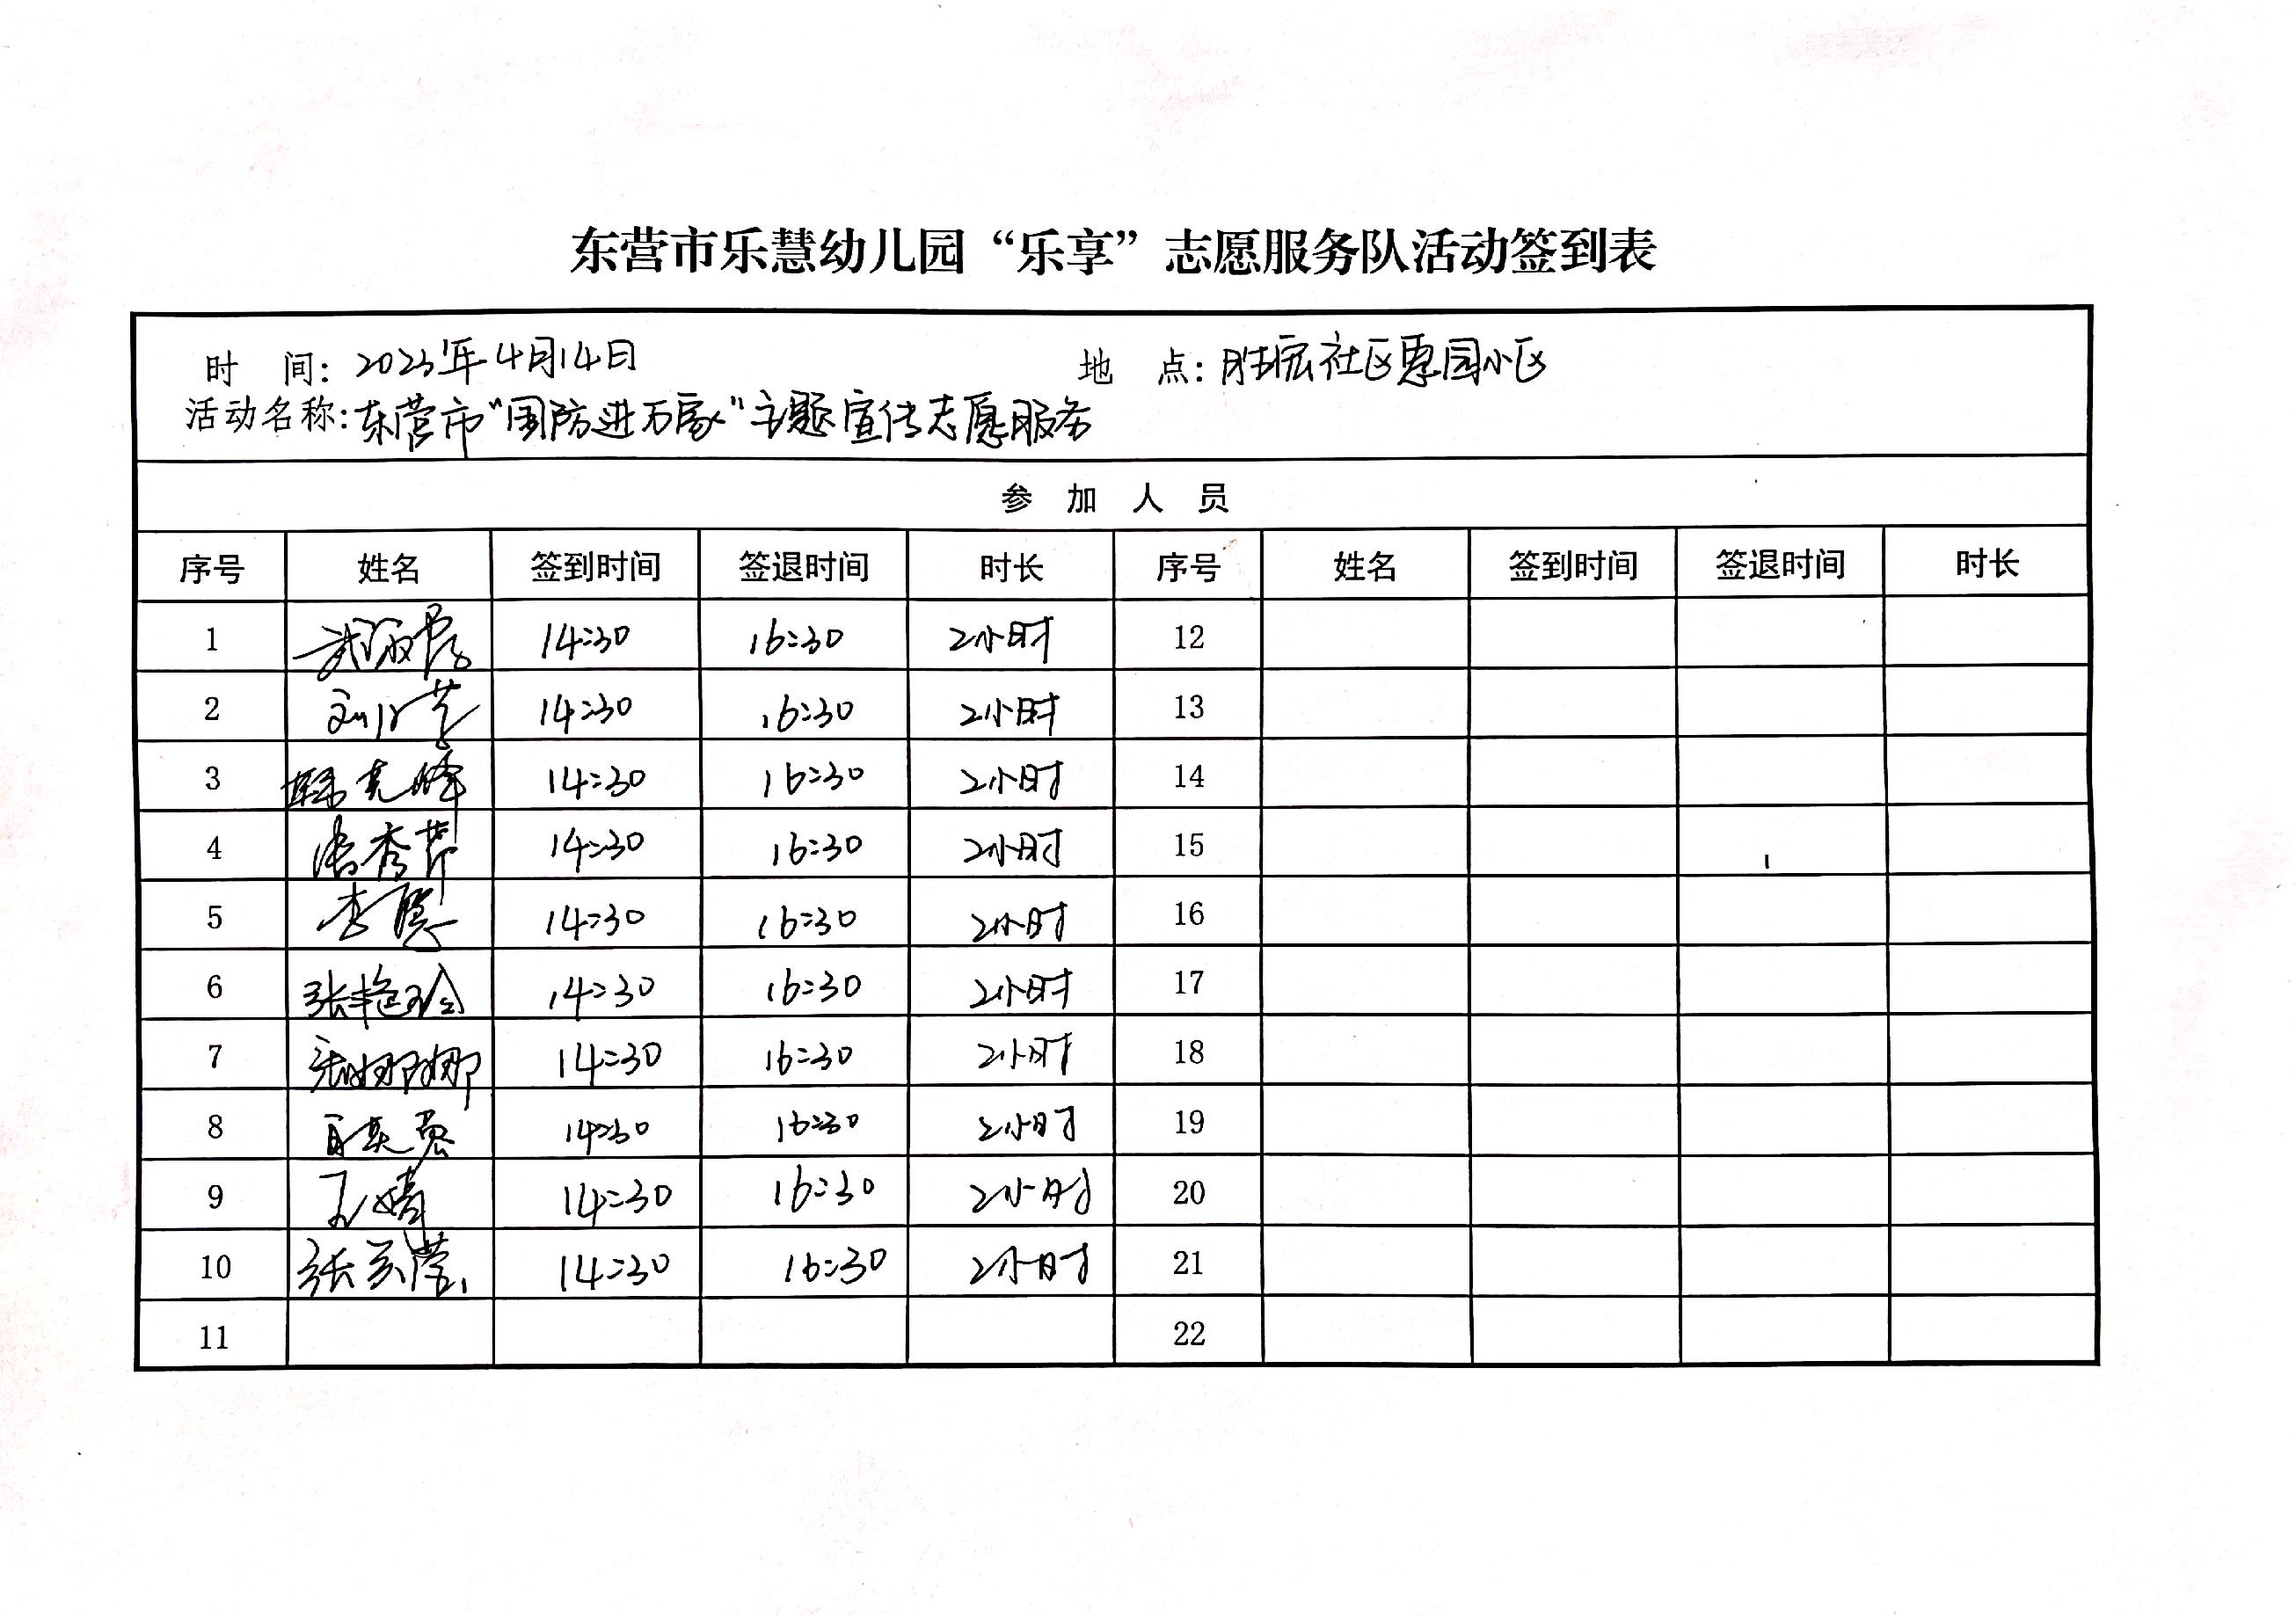 东营市乐慧幼儿园“乐享”志愿服务队活动签到表
时 间：2023年4月14日 地 点：胜宏社区惠园小区
活动名称：东营市“国防进万家”主题宣传志愿服务
参 加 人 员
序号 姓名 签到时间 签退时间 时长 序号 姓名 签到时间 签退时间 时长
1 14:30 16:30 2小时 12
2 14:30 16:30 2小时 13
3 14:30 16:30 2小时 14
4 14:30 16:30 2小时 15
5 李慧 14:30 16:30 2小时 16
6 张艳玲 14:30 16:30 2小时 17
7 张娜娜 14:30 16:30 2小时 18
8 14:30 16:30 2小时 19
9 王婧 14:30 16:30 2小时 20
10 14:30 16:30 2小时 21
11 22